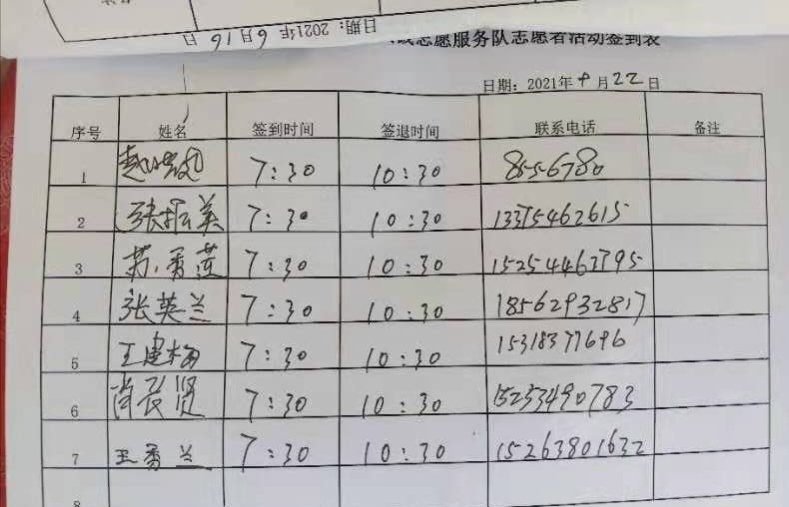 日期：2021年6月16日
志愿服务队志愿者活动签到表
日期：2021年9月22日
序号 姓名 签到时间 签退时间 联系电话 备注
1 7:30 10:30 8556780
2 张振美 7:30 10:30 13375462615
3 苏秀莲 7:30 10:30
4 张英兰 7:30 10:30 18562932817
5 王建梅 7:30 10:30 15318377696
6 肖长贤 7:30 10:30 15253490783
7 王秀兰 7:30 10:30 15263801632
8